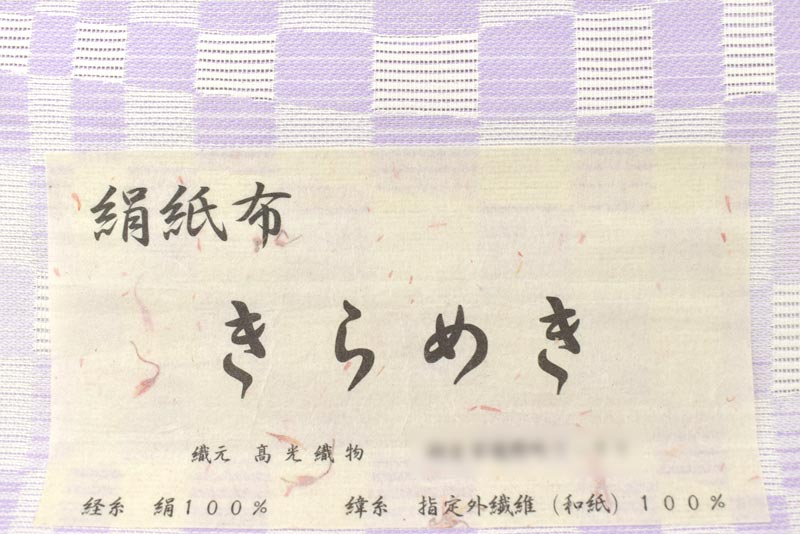 絹紙布
きらめき
織元 髙光織物
経糸 絹100% 緯糸 指定外繊維(和紙)100%